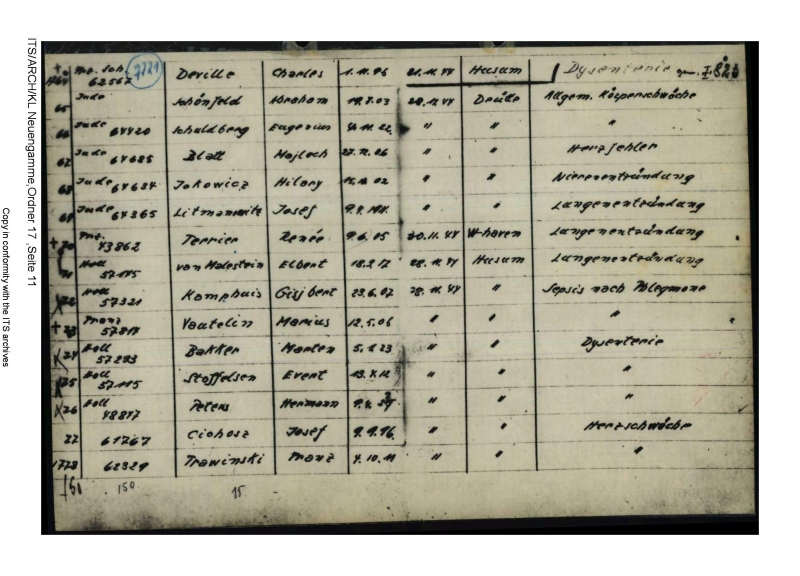 ITS/ARCH/KL Neuengamme,Ordner 17 ,Seite 11
Copy in conformity with the ITS archives
7721
62567 Deville Charles 1.11.96 21.11.44 Husum Dysenterie
65 Jude Schönfeld Abraham 28.11.44 Drütte Allgem. Körperschwäche
66 Jude 64420 Schuldberg Eugenius " " "
67 Jude 64685 Blatt Majloch 27.12.06 " " Herzfehler
68 Jude 64634 Jakowicz Hilary 02 " " Nierenentzündung
69 Jude 64365 Litmanowitz Josef " " Lungenentzündung
+ 70 43862 Terrier Renée 9.6.05 20.11.44 W-haven Lungenentzündung
71 Holl 57145 van Molestein Elbert 18.2.17 28.11.44 Husum Lungenentzündung
72 Holl 57321 Kamphuis Gijsbert 23.6.07 28.11.44 " Sepsis nach Phlegmone
+ 73 Franz 57814 Vautelin Marius 12.5.06 " " "
74 Holl 57283 Bakker Marten 5.1.23 " " Dysenterie
75 Holl 57115 Stoffelsen Evert 13.7.12 " " "
76 Holl 48847 Peters Hermann " " "
77 61767 Ciohosz Josef 9.9.96. " " Herzschwäche
1778 62329 Trawinski Franz 4.10.11 " " "
150 15